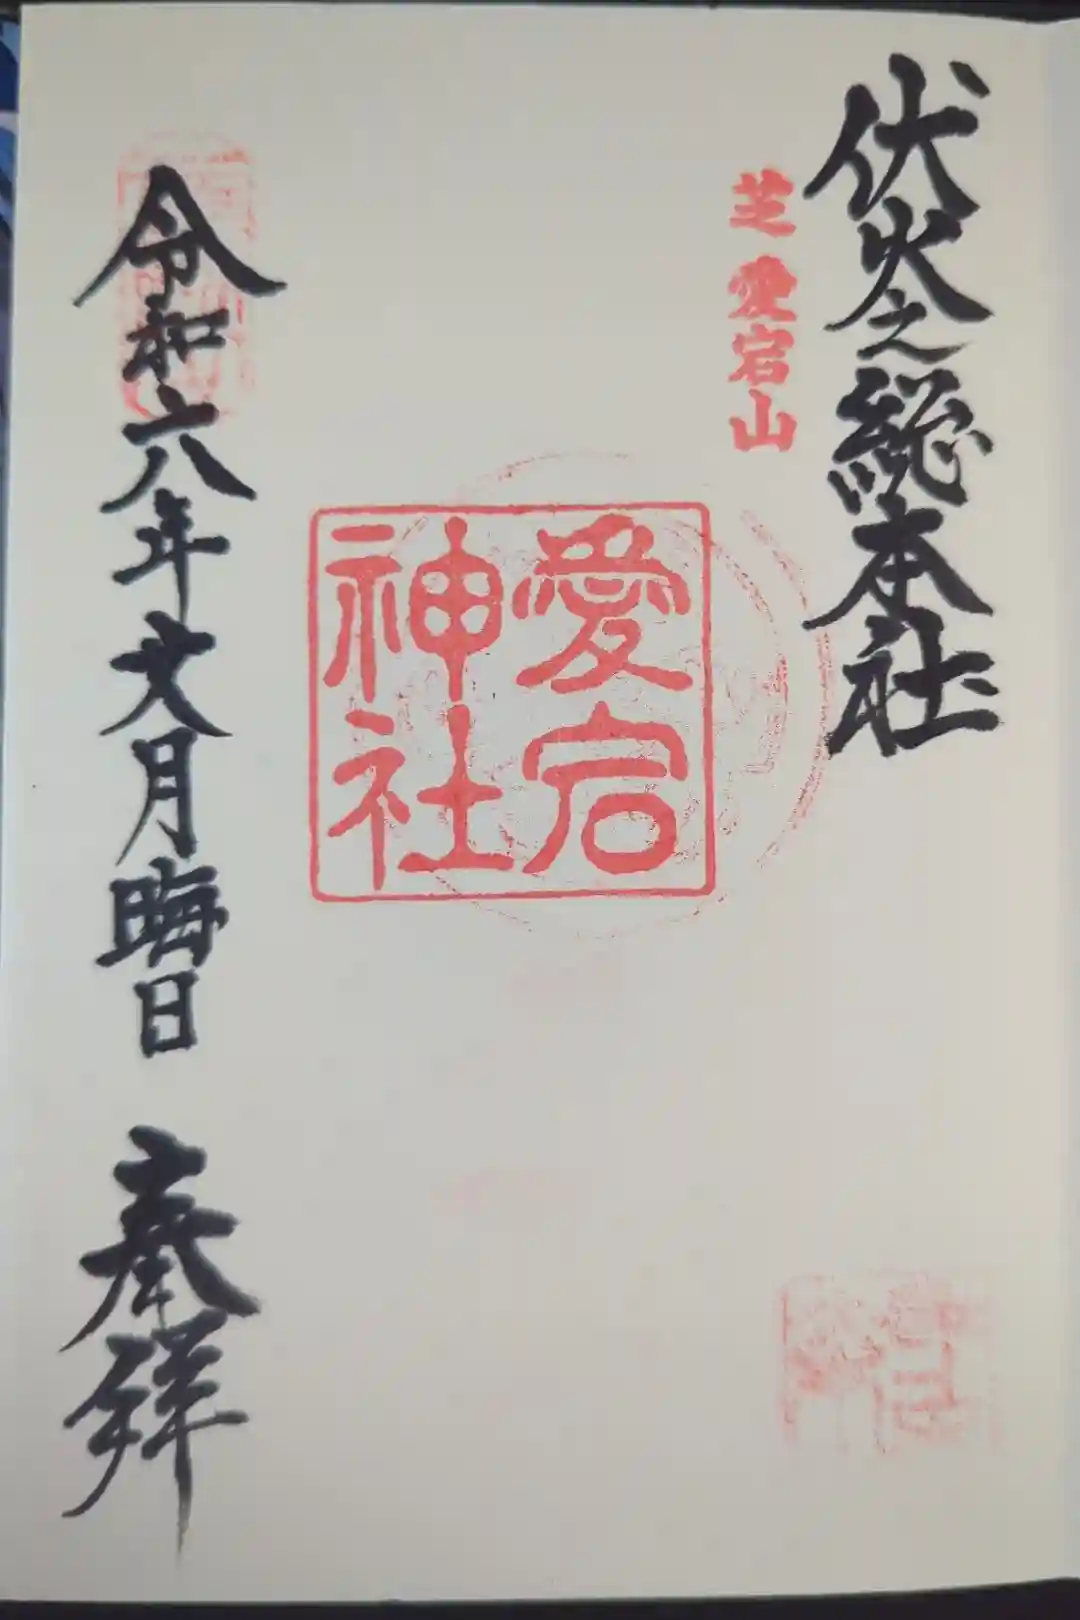 伏火之総本社
芝 愛宕山
愛宕
神社
令和六年文月晦日 奉拝